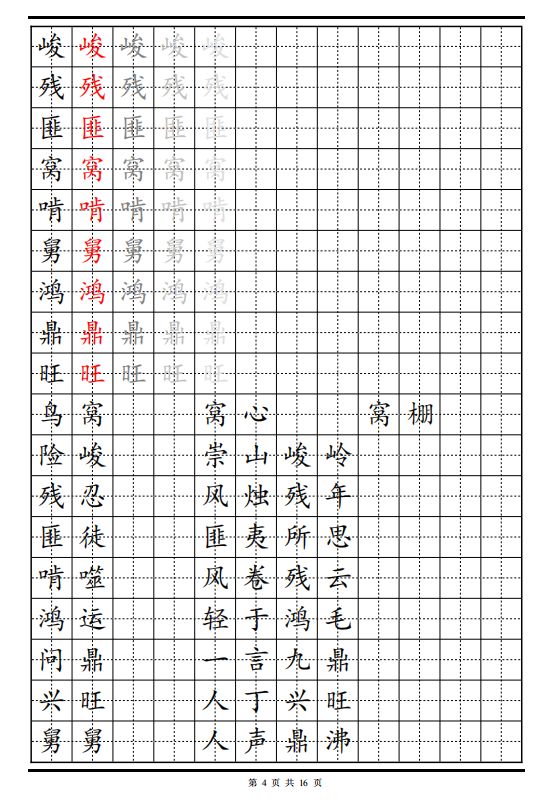 峻 峻 峻 峻 峻
残 残 残 残 残
匪 匪 匪 匪 匪
窝 窝 窝 窝 窝
啃 啃 啃 啃 啃
舅 舅 舅 舅 舅
鸿 鸿 鸿 鸿 鸿
鼎 鼎 鼎 鼎 鼎
旺 旺 旺 旺 旺
鸟窝 窝心 窝棚
险峻 崇山峻岭
残忍 风烛残年
匪徒 匪夷所思
啃噬 风卷残云
鸿运 轻于鸿毛
问鼎 一言九鼎
兴旺 人丁兴旺
舅舅 人声鼎沸
第 4 页 共 16 页